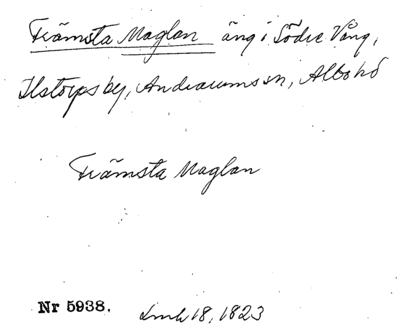 Främsta Maglan äng i Södre Vång,
Ilstorps by, Andrarums sn, Albo hd
Främsta Maglan
Nr 5938. Lmh 18, 1823